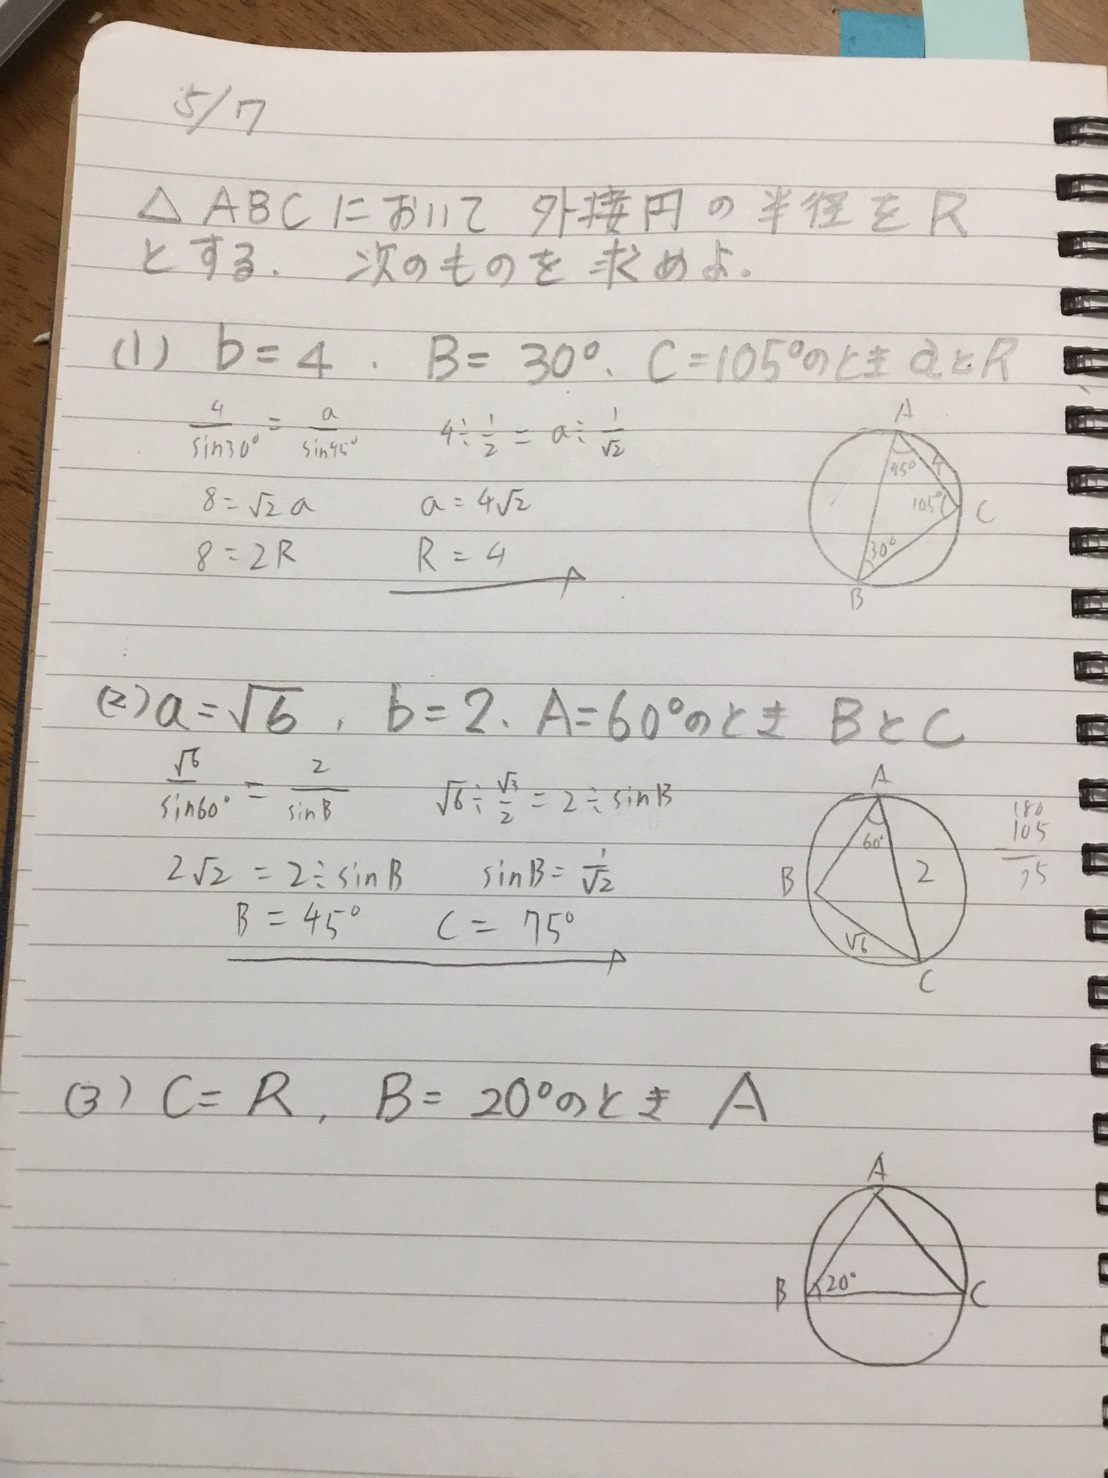 5/7
△ABCにおいて 外接円の半径をR
とする. 次のものを求めよ.
(1) b=4. B=30°. C=105°のとき aとR
4/sin30° = a/sin45° 4÷1/2 = a÷1/√2
8=√2a a=4√2
8=2R R=4
A
45°
4
105°
C
30°
B
(2) a=√6, b=2. A=60°のとき BとC
√6/sin60° = 2/sinB √6÷√3/2 = 2÷sinB
2√2 = 2÷sinB sinB=1/√2
B=45° C=75°
A
60°
B
2
√6
C
180
105
75
(3) C=R, B=20°のとき A
A
B
20°
C